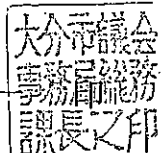 大分市議会
事務局総務
課長之印